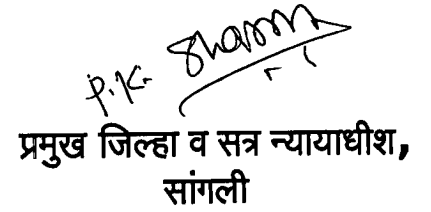 P.K. Sharma
प्रमुख जिल्हा व सत्र न्यायाधीश,
सांगली